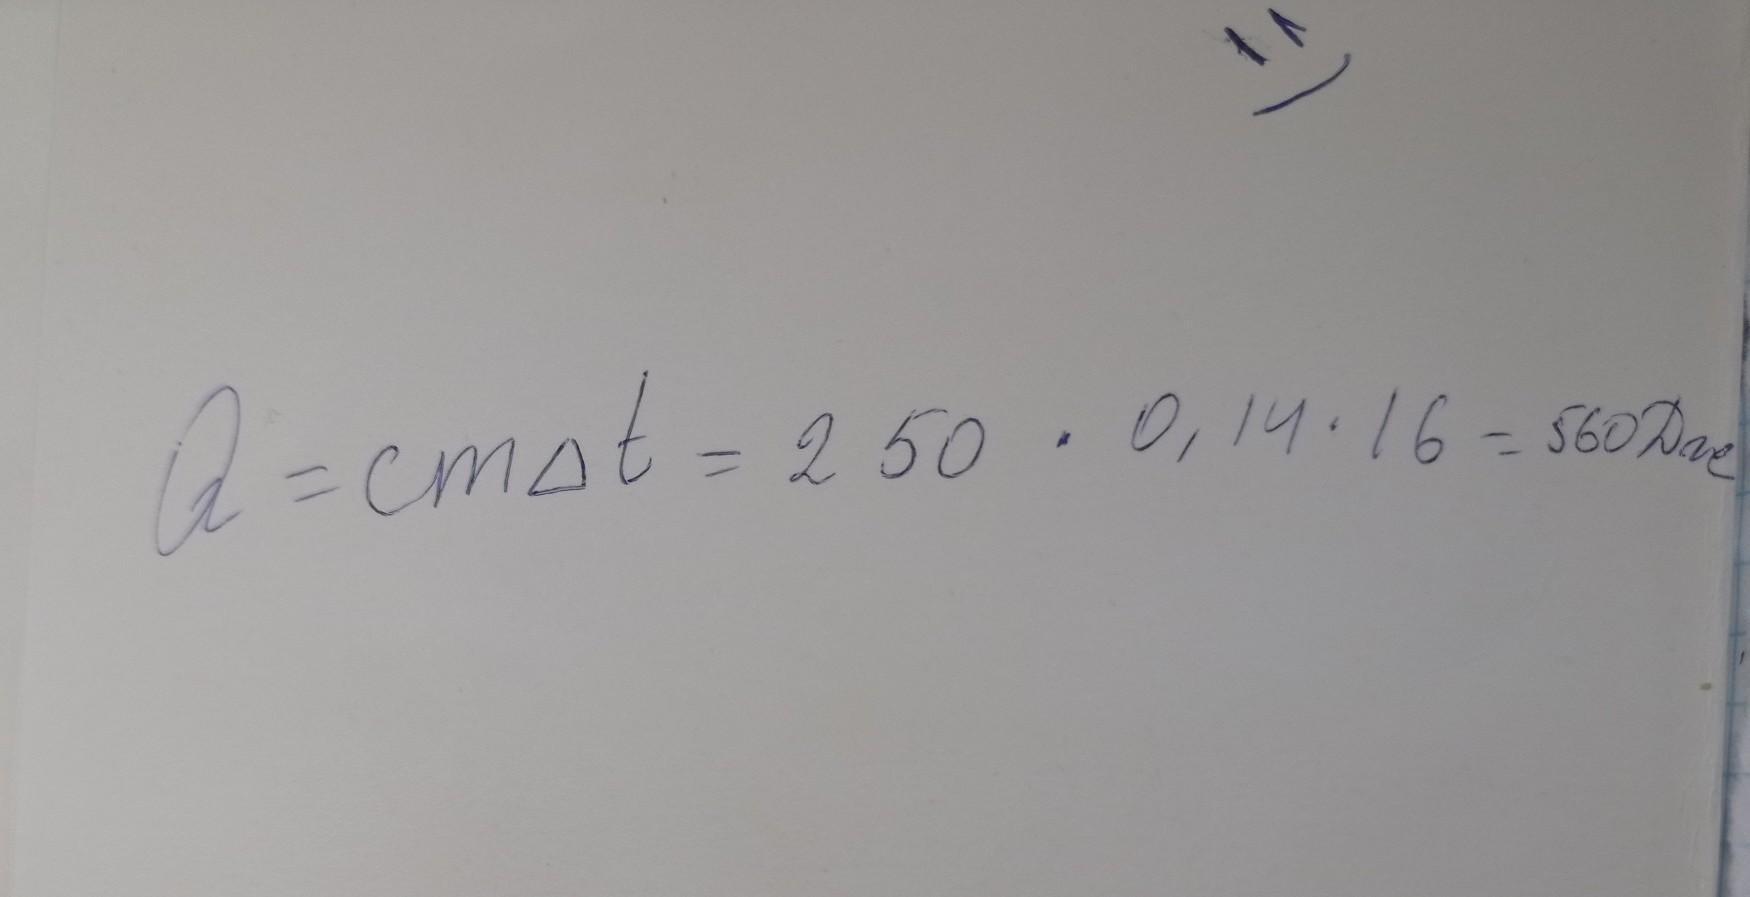 Q = cmΔt = 250 · 0,14 · 16 = 560 Дж